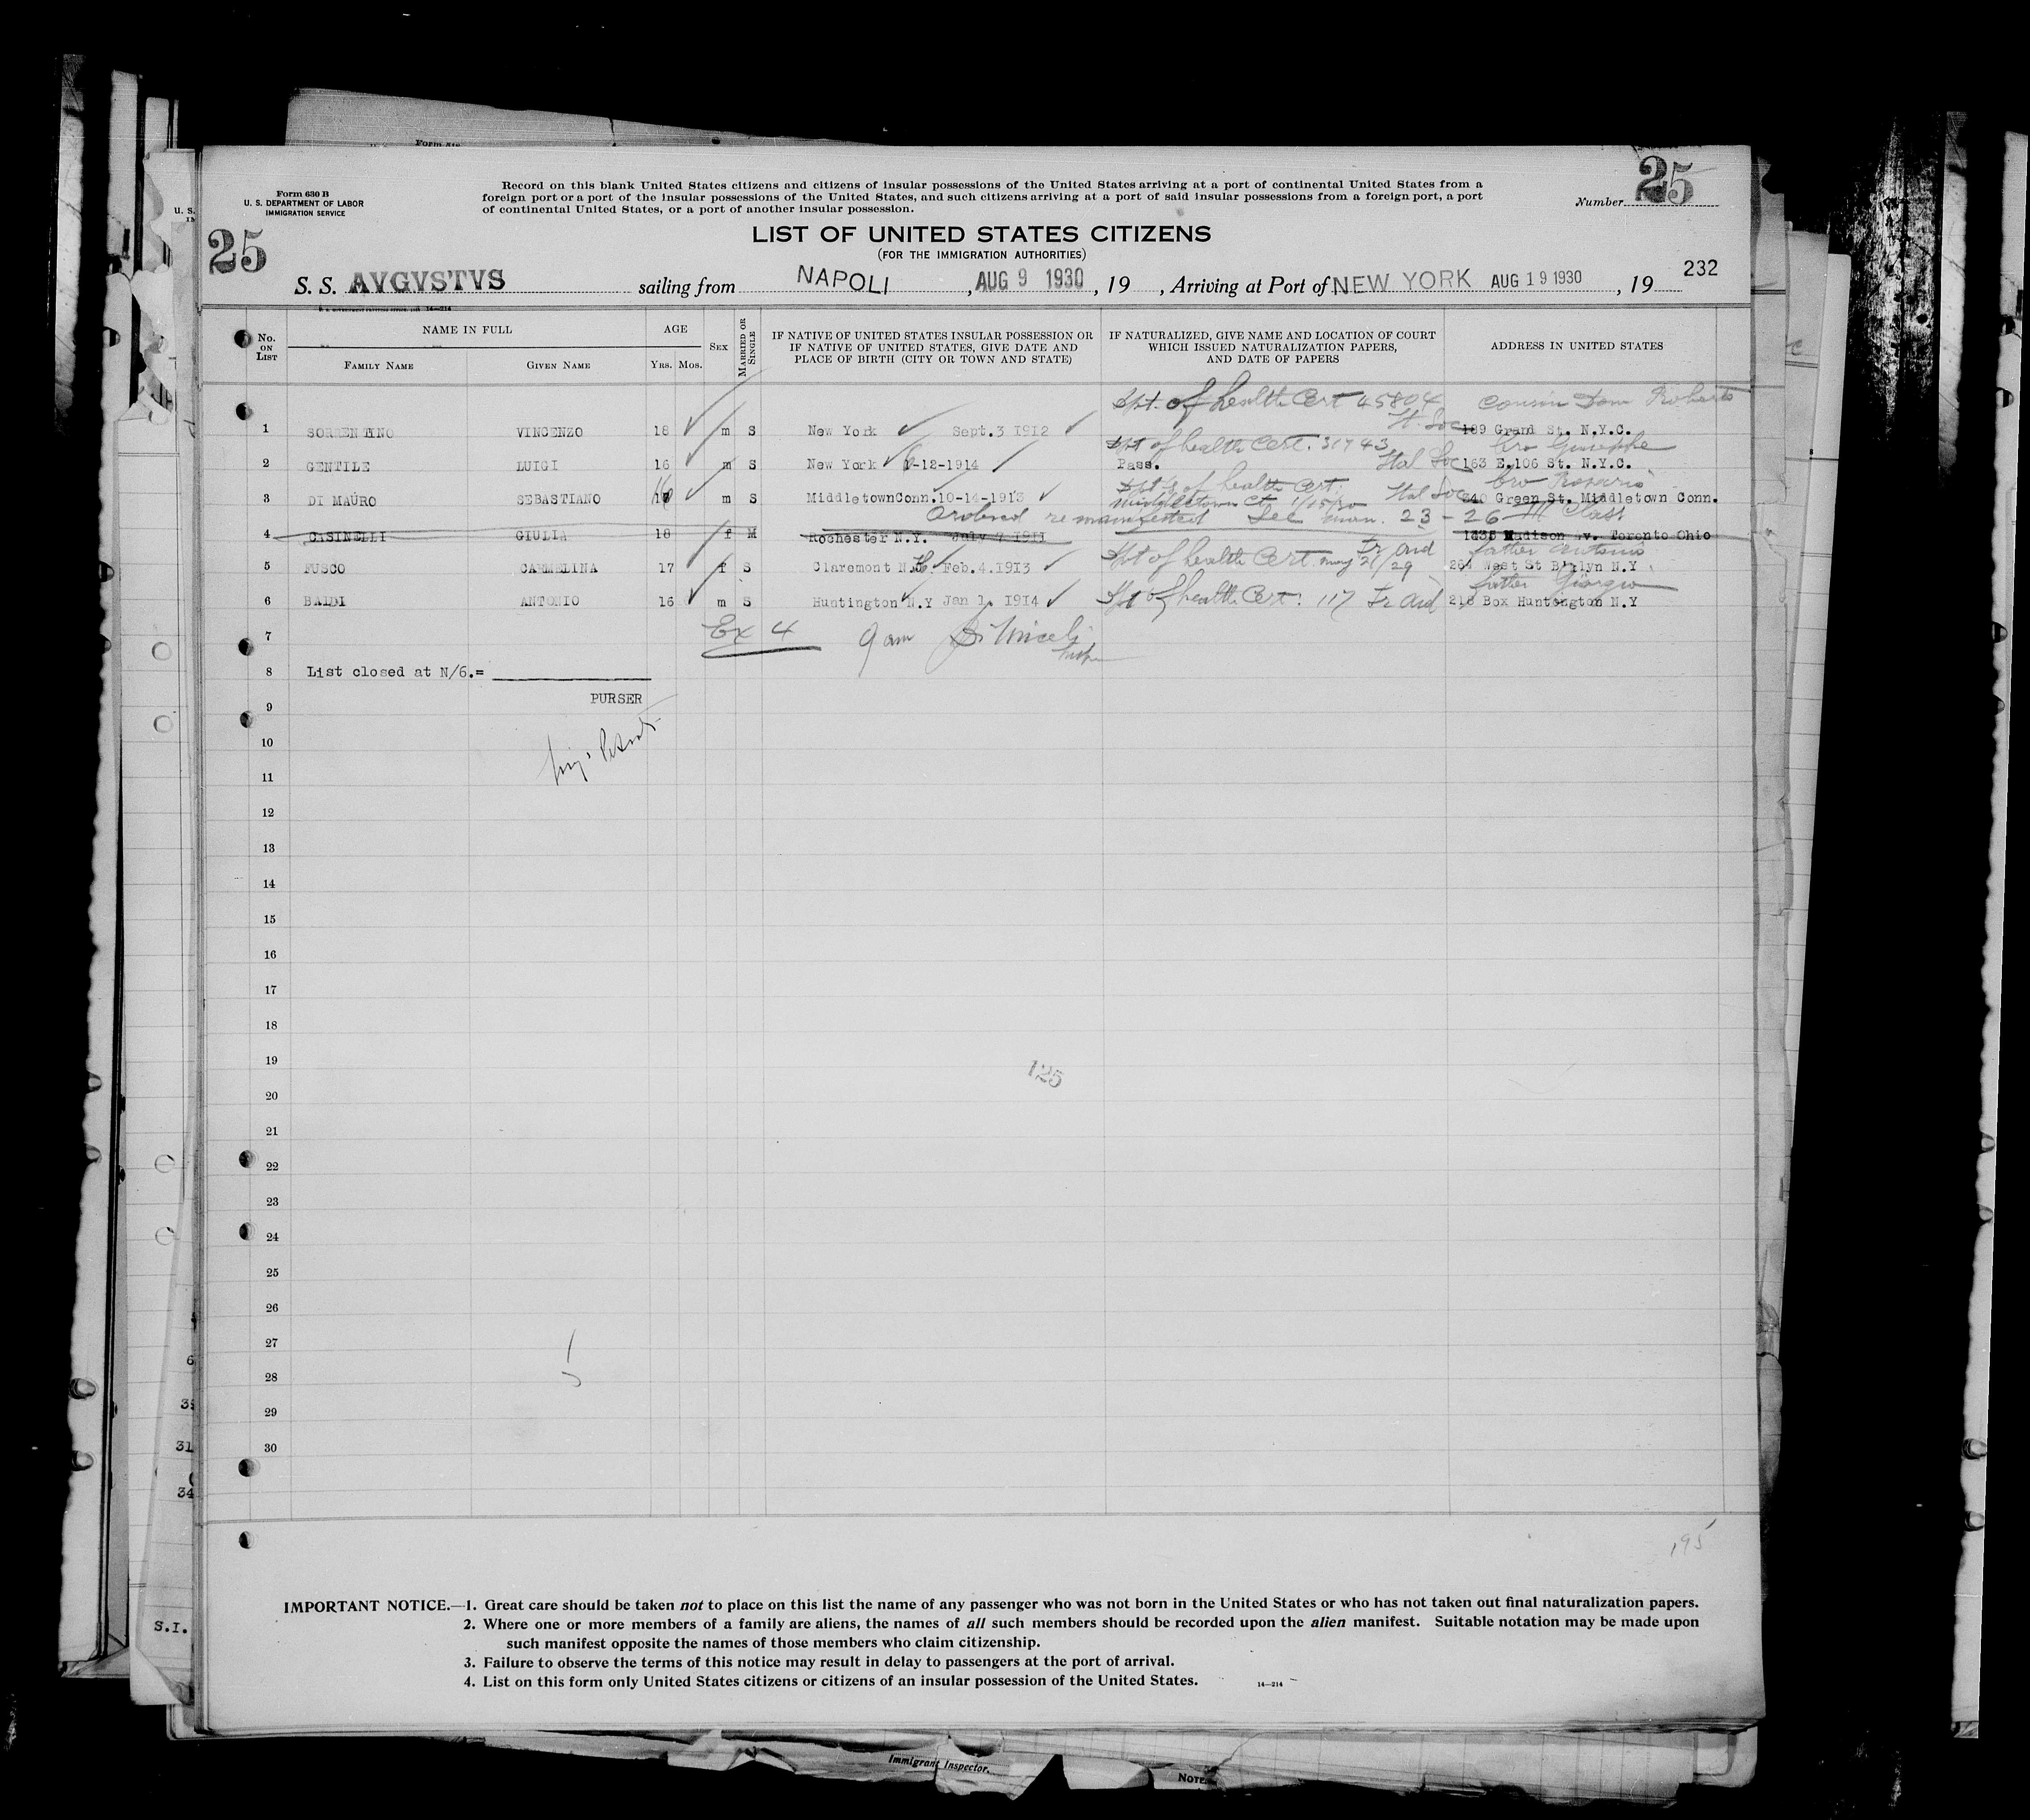 Form 630 B
U. S. DEPARTMENT OF LABOR
IMMIGRATION SERVICE
Record on this blank United States citizens and citizens of insular possessions of the United States arriving at a port of continental United States from a
foreign port or a port of the insular possessions of the United States, and such citizens arriving at a port of said insular possessions from a foreign port, a port
of continental United States, or a port of another insular possession.
Number 25
25
LIST OF UNITED STATES CITIZENS
(FOR THE IMMIGRATION AUTHORITIES)
S. S. AVGVSTVS sailing from NAPOLI , AUG 9 1930 , 19 , Arriving at Port of NEW YORK AUG 19 1930 , 19 232
No. ON LIST
NAME IN FULL
FAMILY NAME
GIVEN NAME
AGE
YRS. MOS.
SEX
MARRIED OR SINGLE
IF NATIVE OF UNITED STATES INSULAR POSSESSION OR
IF NATIVE OF UNITED STATES, GIVE DATE AND
PLACE OF BIRTH (CITY OR TOWN AND STATE)
IF NATURALIZED, GIVE NAME AND LOCATION OF COURT
WHICH ISSUED NATURALIZATION PAPERS,
AND DATE OF PAPERS
ADDRESS IN UNITED STATES
Dpt. of health Cert 45804 Cousin Dom
1 SORRENTINO VINCENZO 18 m S New York Sept.3 1912 It. Soc 189 Grand St. N.Y.C.
Dpt of health Cert. 31743 bro Giuseppe
2 GENTILE LUIGI 16 m S New York -12-1914 Pass. Ital Soc 163 E.106 St. N.Y.C.
Dpt of health Cert. bro Rosario
3 DI MAURO SEBASTIANO 16 m S MiddletownConn.10-14-1913 Middletown Ct 1/15/30 Ital Soc 240 Green St. Middletown Conn.
Ordered remanifested See man. 23-26 III Class
4 CASINELLI GIULIA 18 f M Rochester N.Y. July 7 1911 Madison Av. Toronto Ohio
Dpt of health Cert. May 21/29 Tr Aid father Antonio
5 FUSCO CARMELINA 17 f S Claremont N.H. Feb.4.1913 264 West St Bklyn N.Y
Dpt of health Cert. 117 Tr Aid father Giorgio
6 BALDI ANTONIO 16 m S Huntington N.Y Jan 1. 1914 218 Box Huntington N.Y
7 Ex 4 9 am
8 List closed at N/6.=
PURSER
9
10
11
12
13
14
15
16
17
18
19
125
20
21
22
23
24
25
26
27
28
29
30
195
IMPORTANT NOTICE.—1. Great care should be taken not to place on this list the name of any passenger who was not born in the United States or who has not taken out final naturalization papers.
2. Where one or more members of a family are aliens, the names of all such members should be recorded upon the alien manifest. Suitable notation may be made upon
such manifest opposite the names of those members who claim citizenship.
3. Failure to observe the terms of this notice may result in delay to passengers at the port of arrival.
4. List on this form only United States citizens or citizens of an insular possession of the United States.
14—214
S.I.
Immigrant Inspector.
NOTE